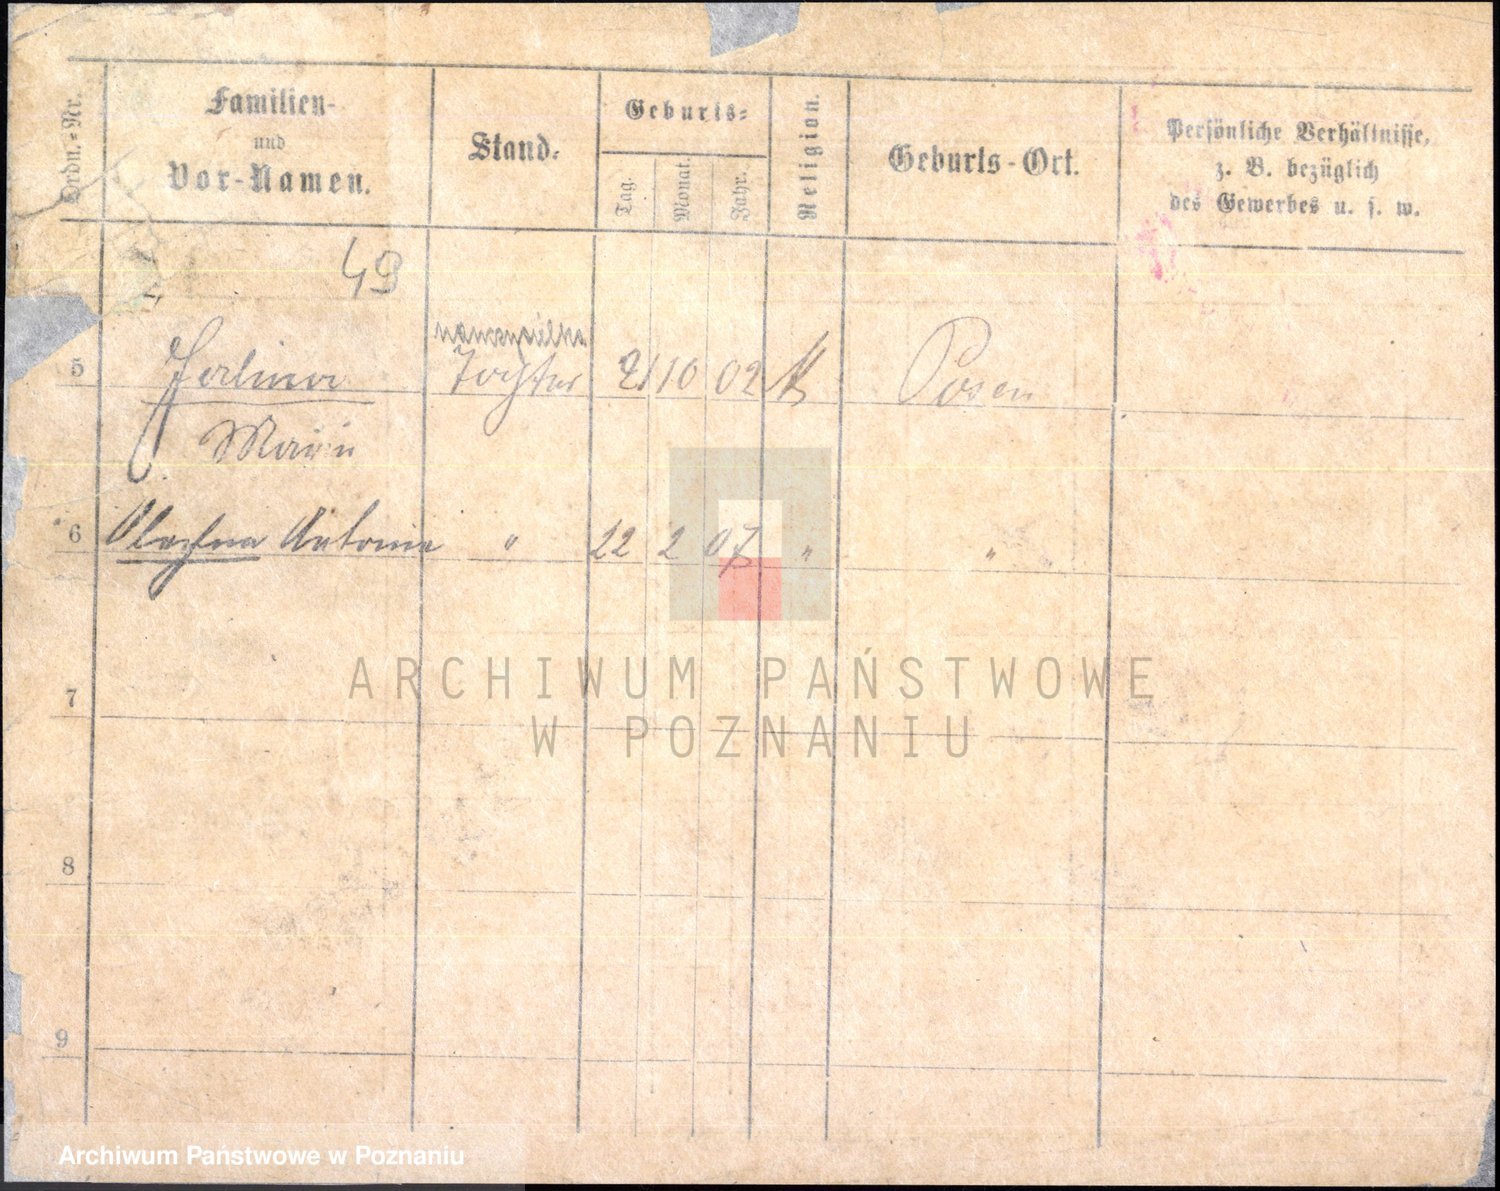 Ordn.-Nr.
Familien-
und
Vor-Namen.
Stand.
Geburts-
Tag.
Monat.
Jahr.
Religion.
Geburts-Ort.
Persönliche Verhältnisse,
z. B. bezüglich
des Gewerbes u. s. w.
49
nauczycielka
5 Halina Tochter 21 10 02 K Posen
Maria
6 Antonie " 22 2 07 " "
ARCHIWUM PAŃSTWOWE
W POZNANIU
7
8
9
Archiwum Państwowe w Poznaniu